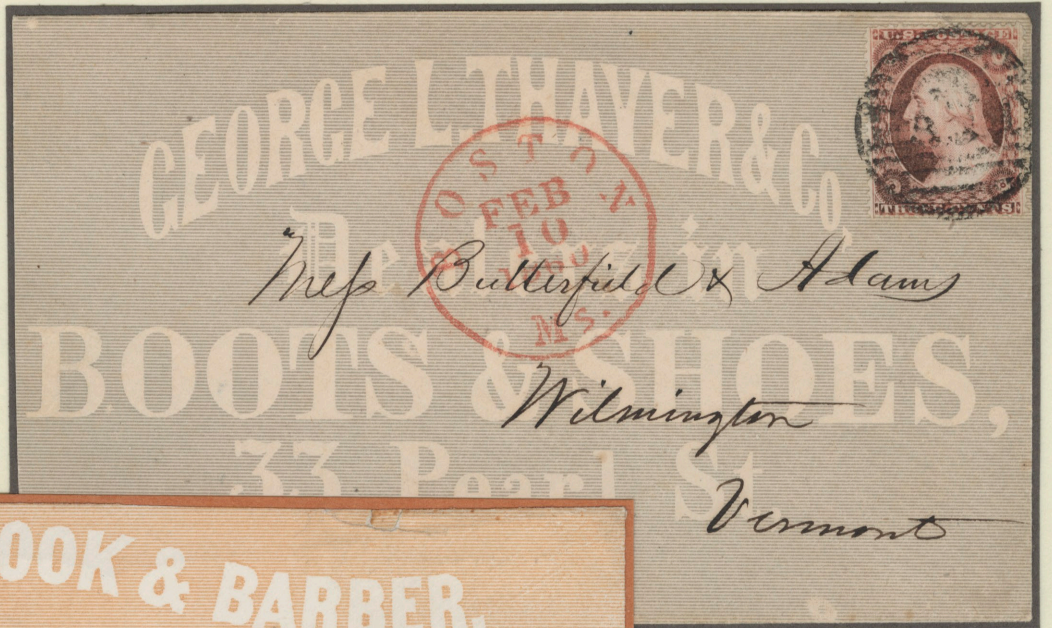 GEORGE L. THAYER & Co,
Dealers in
BOOTS & SHOES,
33 Pearl St
BOSTON
FEB
10
1860
Ms.
U.S. POSTAGE
THREE CENTS
Mess Butterfield & Adams
Wilmington
Vermont
OOK & BARBER,